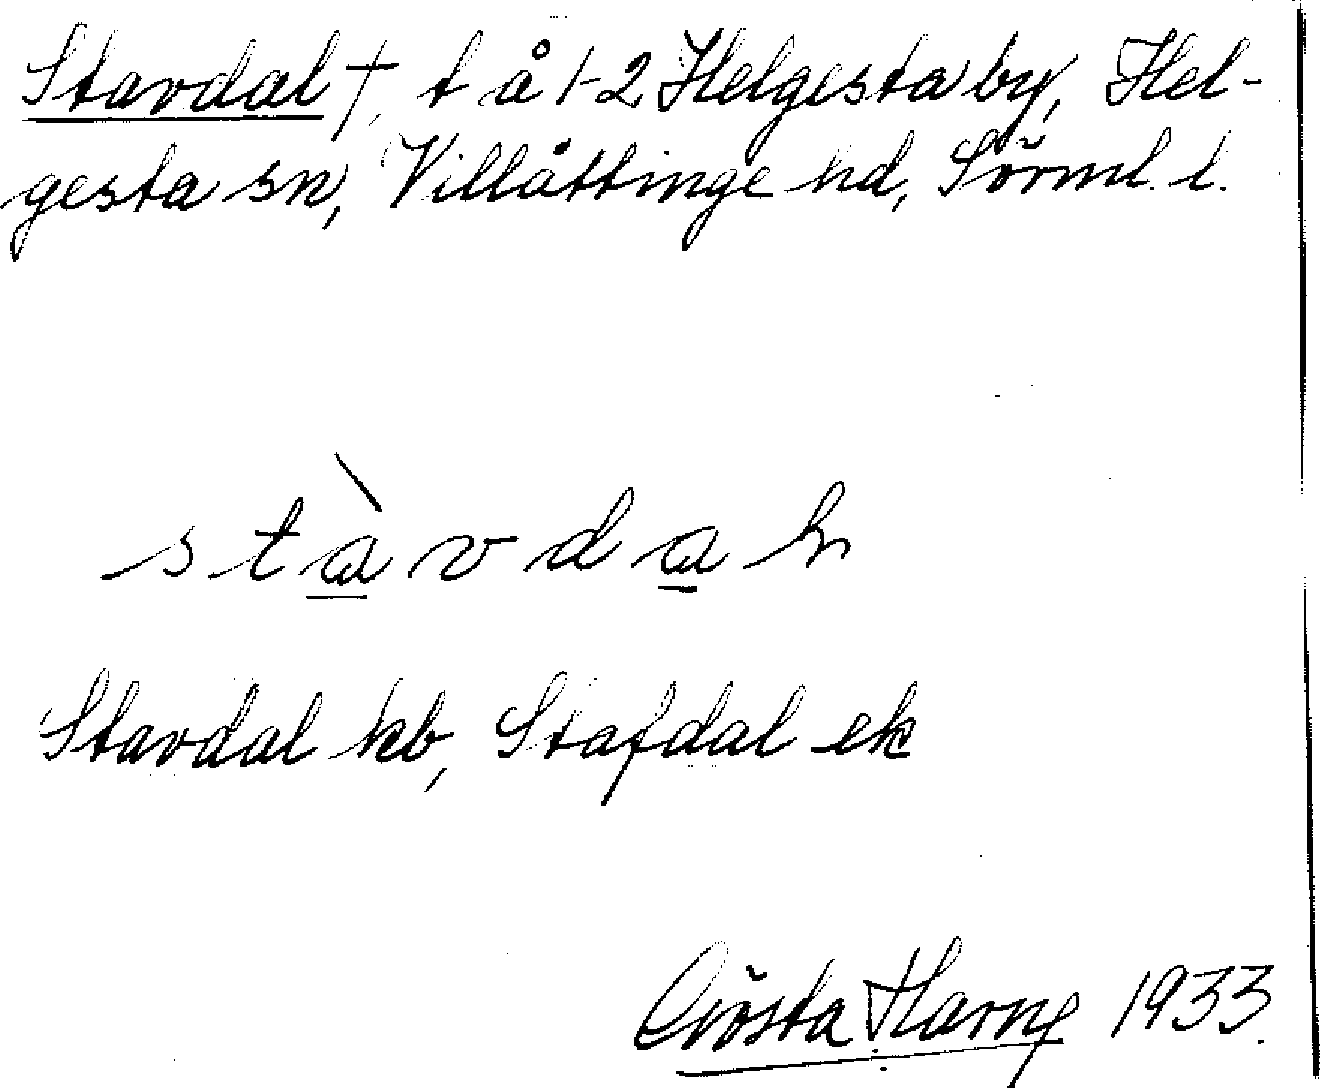 Stavdal †, t å 1-2 Helgesta by, Hel-
gesta sn, Villåttinge hd, Sörml. l.
stàvdaɫ
Stavdal kb, Stafdal ek
Gösta Harng 1933.